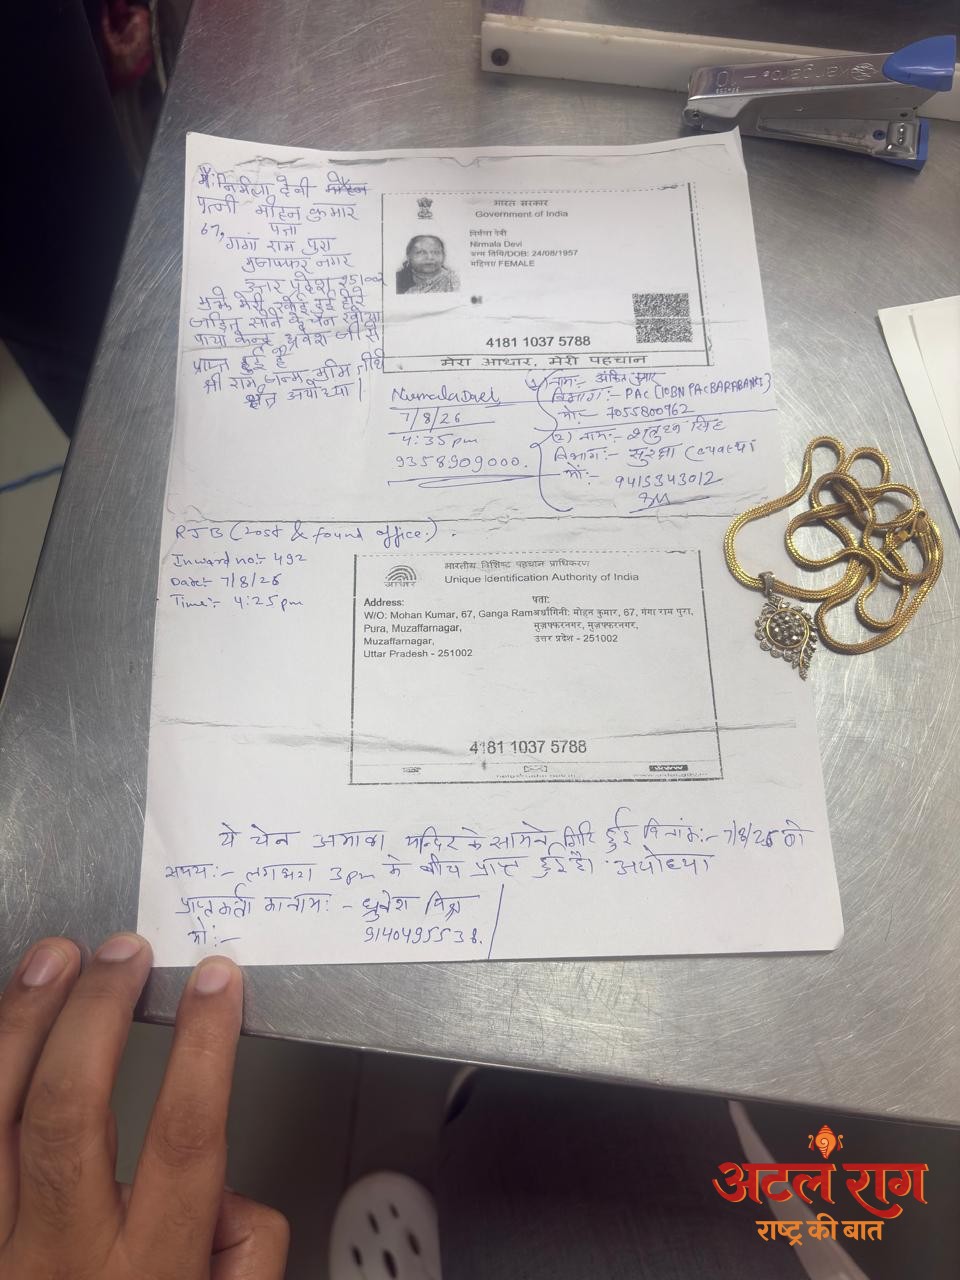 मैं निर्मला देवी
पत्नी मोहन कुमार
67, पता
गंगा राम पुरा
मुजफ्फर नगर
उत्तर प्रदेश 251002
मुझे मेरी खोई हुई हीरे
जड़ित सोने की चेन खोया
पाया केन्द्र से
प्राप्त हुई है
श्री राम जन्म भूमि तीर्थ
क्षेत्र अयोध्या।
भारत सरकार
Government of India
निर्मला देवी
Nirmala Devi
जन्म तिथि/DOB: 24/08/1957
महिला/ FEMALE
4181 1037 5788
मेरा आधार, मेरी पहचान
Nirmala Devi
7/8/26
4:35 pm
9358909000.
(1) नाम:- अंकित कुमार
विभाग:- PAC [10BN PAC BARABANKI]
मो:- 7055800962
(2) नाम:- शत्रुघ्न सिंह
विभाग:- सुरक्षा
मो:- 9415343012
RJB (Lost & found office).
Inward no:- 492
Date:- 7/8/26
Time:- 4:25 pm
भारतीय विशिष्ट पहचान प्राधिकरण
Unique Identification Authority of India
आधार
Address:
W/O: Mohan Kumar, 67, Ganga Ram
Pura, Muzaffarnagar,
Muzaffarnagar,
Uttar Pradesh - 251002
पता:
अर्धांगिनी: मोहन कुमार, 67, गंगा राम पुरा,
मुज़फ्फरनगर, मुज़फ्फरनगर,
उत्तर प्रदेश - 251002
4181 1037 5788
ये चेन अमावा मन्दिर के सामने गिरि हुई दिनांक:- 7/8/26 को
समय:- लगभग 3pm के बीच प्राप्त हुई है। अयोध्या
प्राप्तकर्ता का नाम:- ध्रुवेश मिश्र
मो:- 9140495538.
kangaro 10
अटल राग
राष्ट्र की बात